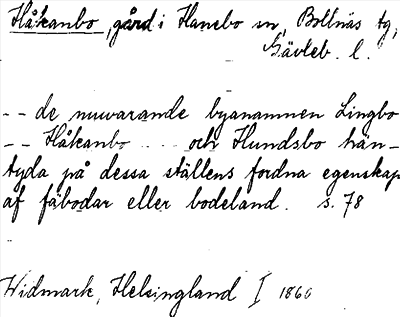 Håkanbo, gård i Hanebo sn, Bollnäs tg,
Gävleb. l.
-- de nuvarande byanamnen Lingbo
-- Håkanbo ... och Hundsbo hän-
tyda på dessa ställens fordna egenskap
af fäbodar eller bodeland. s. 78
Widmark, Helsingland I 1860